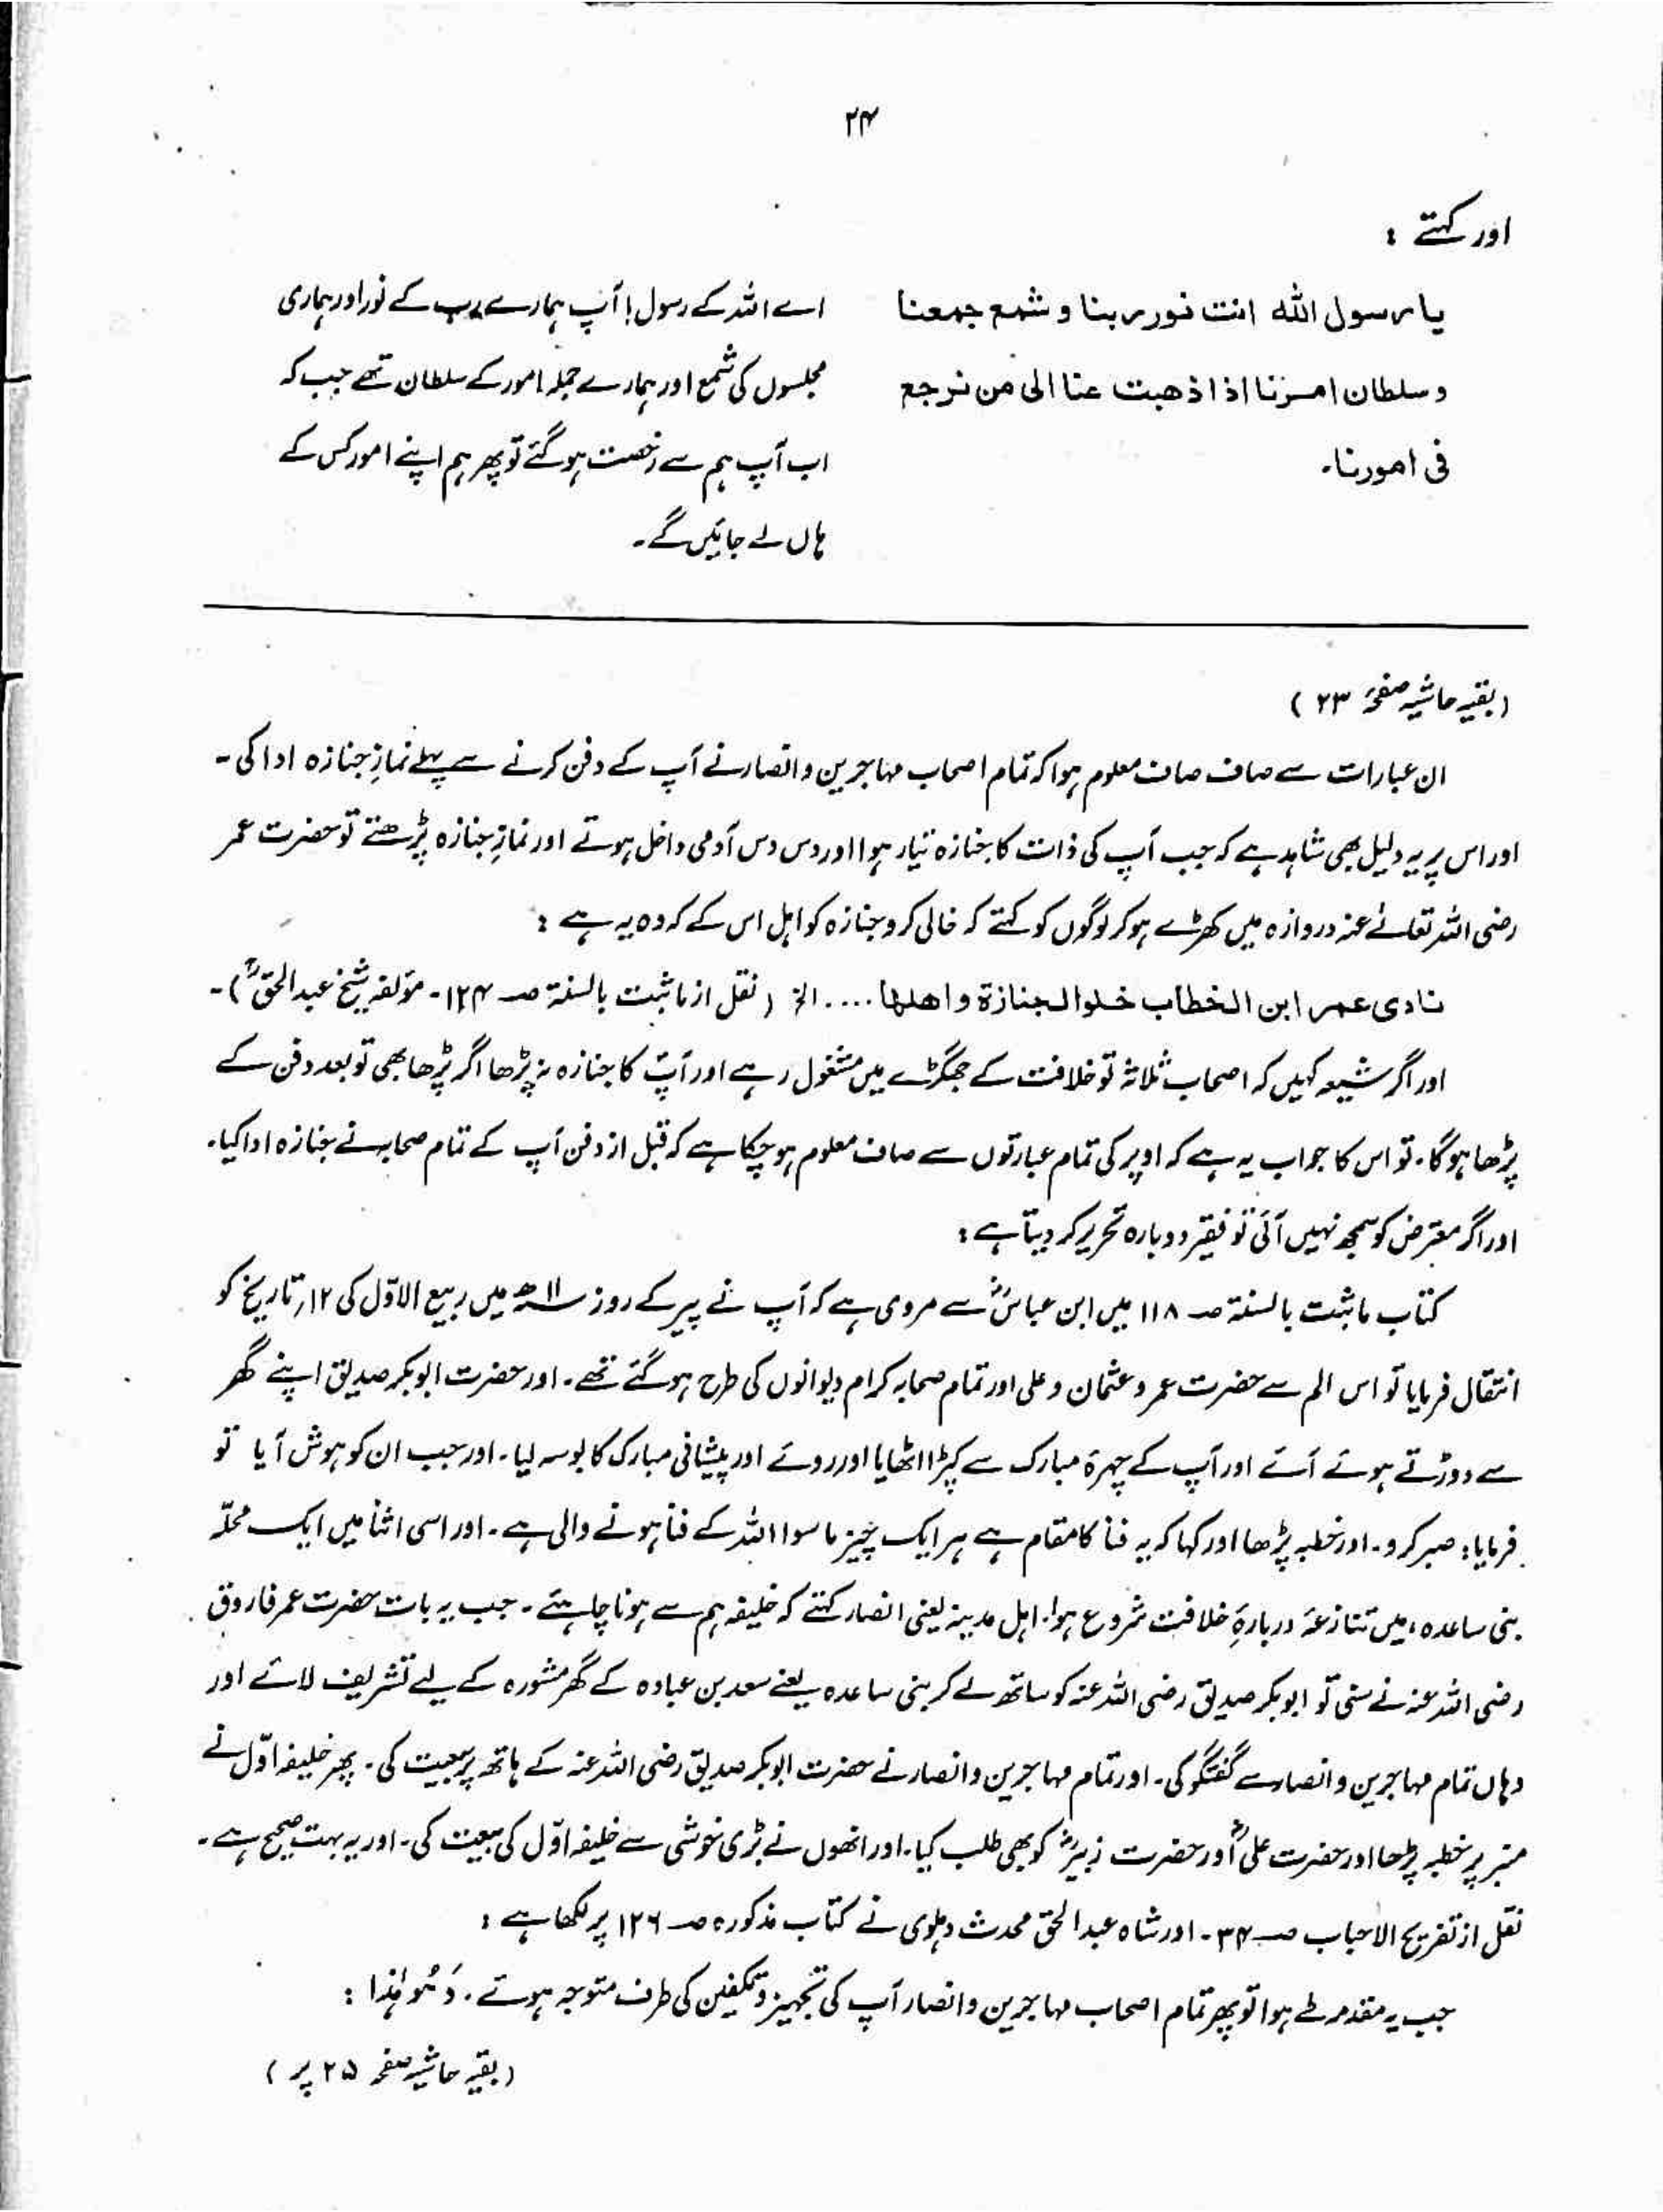 ۲۴
اور کہتے :
یا رسول اللہ انت نور ربنا و شمع جمعنا
و سلطان امرنا اذا ذھبت عنا الی من نرجع
فی امورنا۔
اے اللہ کے رسول! آپ ہمارے رب کے نور اور ہماری
مجلسوں کی شمع اور ہمارے جملہ امور کے سلطان تھے جب کہ
اب آپ ہم سے رخصت ہو گئے تو پھر ہم اپنے امور کس کے
ہاں لے جائیں گے۔
(بقیہ حاشیہ صفحہ ۲۳)
ان عبارات سے صاف صاف معلوم ہوا کہ تمام اصحاب مہاجرین و انصار نے آپ کے دفن کرنے سے پہلے نمازِ جنازہ ادا کی۔
اور اس پر یہ دلیل بھی شاہد ہے کہ جب آپ کی ذات کا جنازہ تیار ہوا اور دس دس آدمی داخل ہوتے اور نمازِ جنازہ پڑھتے تو حضرت عمر
رضی اللہ تعالےٰ عنہ دروازہ میں کھڑے ہو کر لوگوں کو کہتے کہ خالی کرو جنازہ کو اہل اس کے کہ وہ یہ ہے :
نادی عمر ابن الخطاب خلوا الجنازۃ و اھلھا .... الخ (نقل از ما ثبت بالسنۃ صـ ۱۲۴۔ مؤلفہ شیخ عبدالحقؒ)۔
اور اگر شیعہ کہیں کہ اصحاب ثلاثہ تو خلافت کے جھگڑے میں مشغول رہے اور آپؐ کا جنازہ نہ پڑھا اگر پڑھا بھی تو بعد دفن کے
پڑھا ہوگا۔ تو اس کا جواب یہ ہے کہ اوپر کی تمام عبارتوں سے صاف معلوم ہو چکا ہے کہ قبل از دفن آپ کے تمام صحابہ نے جنازہ ادا کیا۔
اور اگر معترض کو سمجھ نہیں آئی تو فقیر دوبارہ تحریر کر دیتا ہے :
کتاب ما ثبت بالسنۃ صـ ۱۱۸ میں ابن عباسؓ سے مروی ہے کہ آپ نے پیر کے روز سنہ ۱۱ھ میں ربیع الاوّل کی ۱۲؍ تاریخ کو
انتقال فرمایا تو اس الم سے حضرت عمر و عثمان و علی اور تمام صحابہ کرام دیوانوں کی طرح ہو گئے تھے۔ اور حضرت ابوبکر صدیق اپنے گھر
سے دوڑتے ہوئے آئے اور آپ کے چہرۂ مبارک سے کپڑا اٹھایا اور روئے اور پیشانی مبارک کا بوسہ لیا۔ اور جب ان کو ہوش آیا تو
فرمایا: صبر کرو۔ اور خطبہ پڑھا اور کہا کہ یہ فنا کا مقام ہے ہر ایک چیز ما سوا اللہ کے فنا ہونے والی ہے۔ اور اسی اثنا میں ایک محلّہ
بنی ساعدہ، میں تنازعہ دربارۂ خلافت شروع ہوا۔ اہل مدینہ یعنی انصار کہتے کہ خلیفہ ہم سے ہونا چاہئے۔ جب یہ بات حضرت عمر فاروق
رضی اللہ عنہ نے سنی تو ابوبکر صدیق رضی اللہ عنہ کو ساتھ لے کر بنی ساعدہ یعنے سعد بن عبادہ کے گھر مشورہ کے لیے تشریف لائے اور
وہاں تمام مہاجرین و انصار سے گفتگو کی۔ اور تمام مہاجرین و انصار نے حضرت ابوبکر صدیق رضی اللہ عنہ کے ہاتھ پر بیعت کی۔ پھر خلیفہ اوّل نے
منبر پر خطبہ پڑھا اور حضرت علیؓ اور حضرت زبیرؓ کو بھی طلب کیا۔ اور انھوں نے بڑی خوشی سے خلیفہ اوّل کی بیعت کی۔ اور یہ بہت صحیح ہے۔
نقل از تفریح الاحباب صـ ۳۴۔ اور شاہ عبدالحق محدث دہلوی نے کتاب مذکورہ صـ ۱۲۶ پر لکھا ہے :
جب یہ مقدمہ طے ہوا تو پھر تمام اصحاب مہاجرین و انصار آپ کی تجہیز و تکفین کی طرف متوجہ ہوئے۔ وَھُوَ ھٰذا :
(بقیہ حاشیہ صفحہ ۲۵ پر)